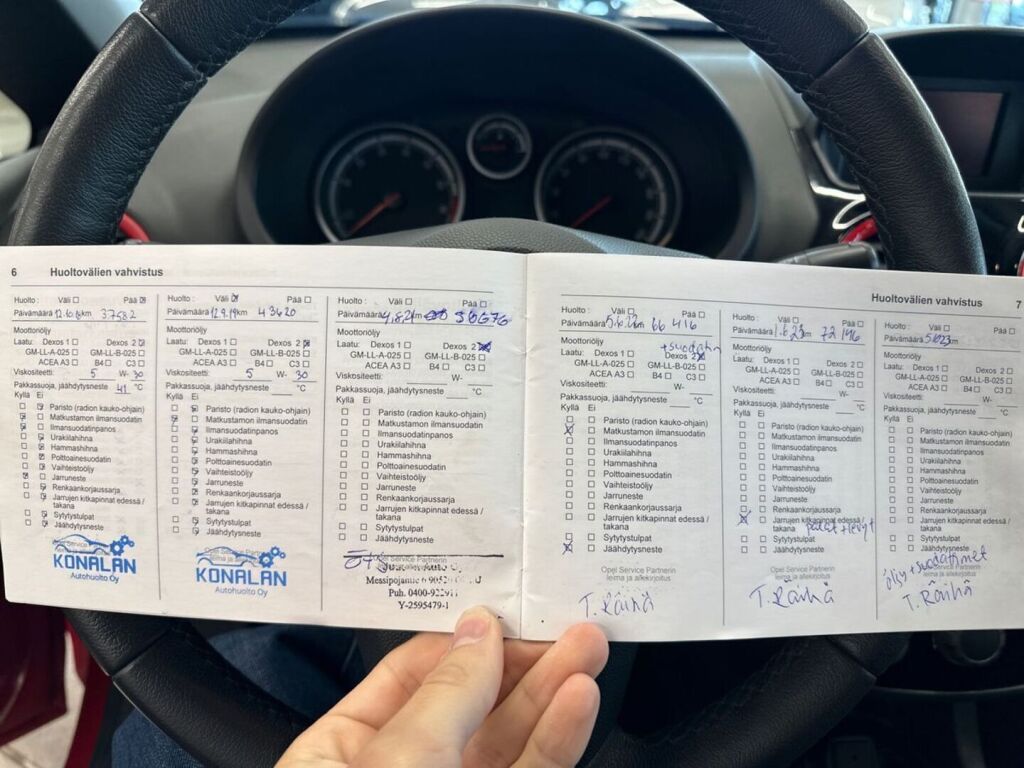 6 Huoltovälien vahvistus
Huolto : Väli ☐ Pää ☒
Päivämäärä 12.10.18 km 37582
Moottoriöljy
Laatu: Dexos 1 ☐ Dexos 2 ☒
GM-LL-A-025 ☐ GM-LL-B-025 ☐
ACEA A3 ☐ B4 ☐ C3 ☐
Viskositeetti: 5 W- 30
Pakkassuoja, jäähdytysneste 41 °C
Kyllä Ei
Paristo (radion kauko-ohjain)
Matkustamon ilmansuodatin
Ilmansuodatinpanos
Urakiilahihna
Hammashihna
Polttoainesuodatin
Vaihteistoöljy
Jarruneste
Renkaankorjaussarja
Jarrujen kitkapinnat edessä /
takana
Sytytystulpat
Jäähdytysneste
KONALAN
Autohuolto Oy
Huolto : Väli ☒ Pää ☐
Päivämäärä 12.9.19 km 43620
Moottoriöljy
Laatu: Dexos 1 ☐ Dexos 2 ☒
GM-LL-A-025 ☐ GM-LL-B-025 ☐
ACEA A3 ☐ B4 ☐ C3 ☐
Viskositeetti: 5 W- 30
Pakkassuoja, jäähdytysneste °C
Kyllä Ei
Paristo (radion kauko-ohjain)
Matkustamon ilmansuodatin
Ilmansuodatinpanos
Urakiilahihna
Hammashihna
Polttoainesuodatin
Vaihteistoöljy
Jarruneste
Renkaankorjaussarja
Jarrujen kitkapinnat edessä /
takana
Sytytystulpat
Jäähdytysneste
KONALAN
Autohuolto Oy
Huolto : Väli ☐ Pää ☐
Päivämäärä 4.8.21 km 56676
Moottoriöljy
Laatu: Dexos 1 ☐ Dexos 2 ☒
GM-LL-A-025 ☐ GM-LL-B-025 ☐
ACEA A3 ☐ B4 ☐ C3 ☐
Viskositeetti: W-
Pakkassuoja, jäähdytysneste °C
Kyllä Ei
Paristo (radion kauko-ohjain)
Matkustamon ilmansuodatin
Ilmansuodatinpanos
Urakiilahihna
Hammashihna
Polttoainesuodatin
Vaihteistoöljy
Jarruneste
Renkaankorjaussarja
Jarrujen kitkapinnat edessä /
takana
Sytytystulpat
Jäähdytysneste
Opel Service Partnerin
Messipojantie 6 90520
Puh. 0400-922911
Y-2595479-1
Huoltovälien vahvistus 7
Huolto : Väli ☐ Pää ☐
Päivämäärä km 66 416
Moottoriöljy +suodatin
Laatu: Dexos 1 ☐ Dexos 2 ☒
GM-LL-A-025 ☐ GM-LL-B-025 ☐
ACEA A3 ☐ B4 ☐ C3 ☐
Viskositeetti: W-
Pakkassuoja, jäähdytysneste °C
Kyllä Ei
Paristo (radion kauko-ohjain)
Matkustamon ilmansuodatin
Ilmansuodatinpanos
Urakiilahihna
Hammashihna
Polttoainesuodatin
Vaihteistoöljy
Jarruneste
Renkaankorjaussarja
Jarrujen kitkapinnat edessä /
takana
Sytytystulpat
Jäähdytysneste
Opel Service Partnerin
leima ja allekirjoitus
T. Räihä
Huolto : Väli ☐ Pää ☐
Päivämäärä 1.6.23 km 72 196
Moottoriöljy
Laatu: Dexos 1 ☐ Dexos 2 ☐
GM-LL-A-025 ☐ GM-LL-B-025 ☐
ACEA A3 ☐ B4 ☐ C3 ☐
Viskositeetti: W-
Pakkassuoja, jäähdytysneste °C
Kyllä Ei
Paristo (radion kauko-ohjain)
Matkustamon ilmansuodatin
Ilmansuodatinpanos
Urakiilahihna
Hammashihna
Polttoainesuodatin
Vaihteistoöljy
Jarruneste
Renkaankorjaussarja
Jarrujen kitkapinnat edessä /
takana palat + levyt
Sytytystulpat
Jäähdytysneste
Opel Service Partnerin
leima ja allekirjoitus
T. Räihä
Huolto : Väli ☐ Pää ☐
Päivämäärä km
Moottoriöljy
Laatu: Dexos 1 ☐ Dexos 2 ☐
GM-LL-A-025 ☐ GM-LL-B-025 ☐
ACEA A3 ☐ B4 ☐ C3 ☐
Viskositeetti: W-
Pakkassuoja, jäähdytysneste °C
Kyllä Ei
Paristo (radion kauko-ohjain)
Matkustamon ilmansuodatin
Ilmansuodatinpanos
Urakiilahihna
Hammashihna
Polttoainesuodatin
Vaihteistoöljy
Jarruneste
Renkaankorjaussarja
Jarrujen kitkapinnat edessä /
takana
Sytytystulpat
Jäähdytysneste
Opel Service Partnerin
leima ja allekirjoitus
öljy + suodattimet
T. Räihä